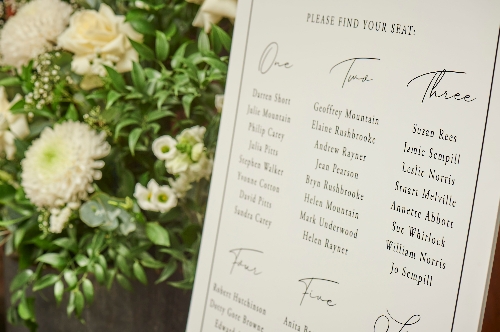 PLEASE FIND YOUR SEAT:
One
Darren Short
Julie Mountain
Philip Carey
Julia Pitts
Stephen Walker
Yvonne Cotton
David Pitts
Sandra Carey
Two
Geoffrey Mountain
Elaine Rushbrooke
Andrew Rayner
Jean Pearson
Bryn Rushbrooke
Helen Mountain
Mark Underwood
Helen Rayner
Three
Susan Rees
Jamie Sempill
Leslie Norris
Stuart Melville
Annette Abbott
Sue Whitlock
William Norris
Jo Sempill
Four
Robert Hutchinson
Dorcy Gore Browne
Edward
Five
Anita